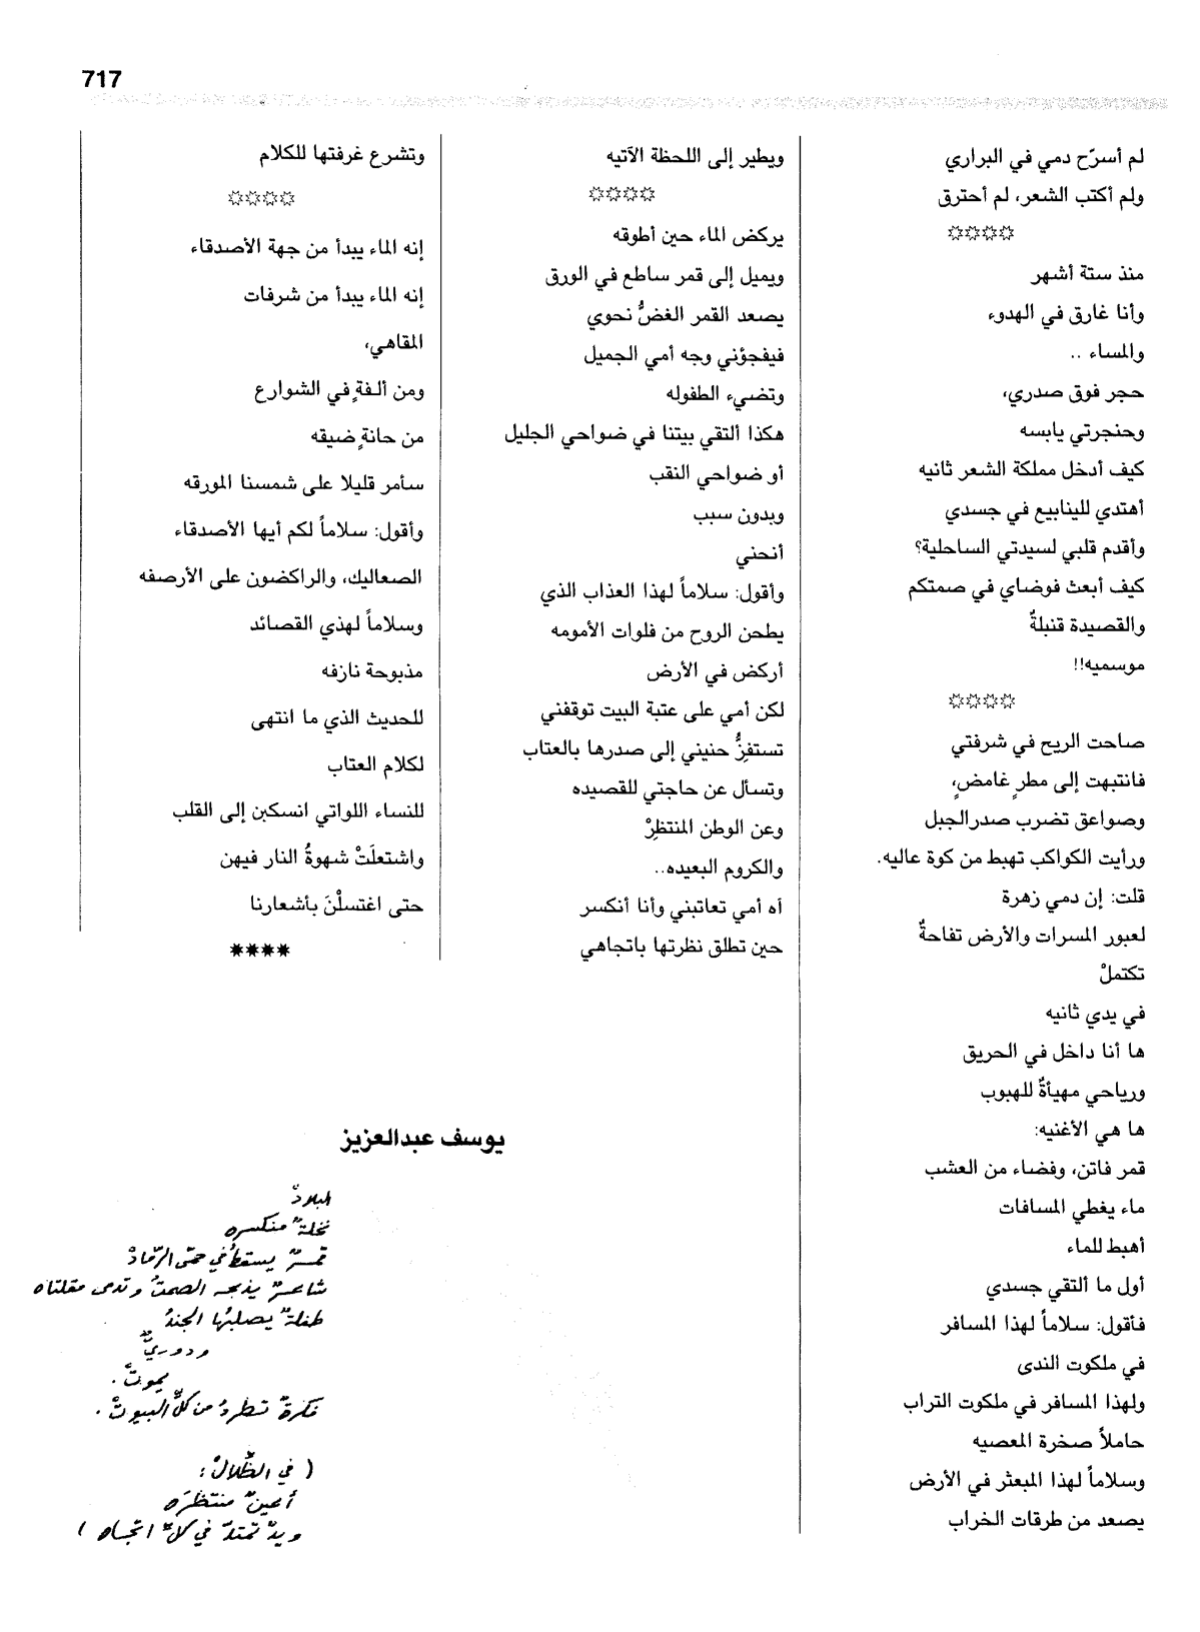 717
لم أسرّح دمي في البراري
ولم أكتب الشعر، لم أحترق
☼☼☼☼
منذ ستة أشهر
وأنا غارق في الهدوء
والمساء ..
حجر فوق صدري،
وحنجرتي يابسه
كيف أدخل مملكة الشعر ثانيه
أهتدي للينابيع في جسدي
وأقدم قلبي لسيدتي الساحلية؟
كيف أبعث فوضاي في صمتكم
والقصيدة قنبلةٌ
موسميه!!
☼☼☼☼
صاحت الريح في شرفتي
فانتبهت إلى مطرٍ غامضٍ،
وصواعق تضرب صدرالجبل
ورأيت الكواكب تهبط من كوة عاليه.
قلت: إن دمي زهرة
لعبور المسرات والأرض تفاحةٌ
تكتملْ
في يدي ثانيه
ها أنا داخل في الحريق
ورياحي مهيأةٌ للهبوب
ها هي الأغنيه:
قمر فاتن، وفضاء من العشب
ماء يغطي المسافات
أهبط للماء
أول ما ألتقي جسدي
فأقول: سلاماً لهذا المسافر
في ملكوت الندى
ولهذا المسافر في ملكوت التراب
حاملاً صخرة المعصيه
وسلاماً لهذا المبعثر في الأرض
يصعد من طرقات الخراب
ويطير إلى اللحظة الآتيه
☼☼☼☼
يركض الماء حين أطوقه
ويميل إلى قمر ساطع في الورق
يصعد القمر الغضُّ نحوي
فيفجؤني وجه أمي الجميل
وتضيء الطفوله
هكذا ألتقي بيتنا في ضواحي الجليل
أو ضواحي النقب
وبدون سبب
أنحني
وأقول: سلاماً لهذا العذاب الذي
يطحن الروح من فلوات الأمومه
أركض في الأرض
لكن أمي على عتبة البيت توقفني
تستفزُّ حنيني إلى صدرها بالعتاب
وتسأل عن حاجتي للقصيده
وعن الوطن المنتظِرْ
والكروم البعيده..
أه أمي تعاتبني وأنا أنكسر
حين تطلق نظرتها باتجاهي
وتشرع غرفتها للكلام
☼☼☼☼
إنه الماء يبدأ من جهة الأصدقاء
إنه الماء يبدأ من شرفات
المقاهي،
ومن ألفةٍ في الشوارع
من حانةٍ ضيقه
سأمر قليلا على شمسنا المورقه
وأقول: سلاماً لكم أيها الأصدقاء
الصعاليك، والراكضون على الأرصفه
وسلاماً لهذي القصائد
مذبوحة نازفه
للحديث الذي ما انتهى
لكلام العتاب
للنساء اللواتي انسكبن إلى القلب
واشتعلَتْ شهوةُ النار فيهن
حتى اغتسلْنَ بأشعارنا
****
يوسف عبدالعزيز
البلادْ
نخلةٌ منكسره
قمرٌ يسقطُ في حمّى الرّمادْ
شاعرٌ يذبحه الصمتُ وتدمى مقلتاه
طفلةٌ يصلبُها الجندُ
ودوريٌّ
يموتْ .
فكرةٌ تطردُ من كلِّ البيوتْ .
( في الظّلالْ :
أعينٌ منتظرَه
ويدٌ تمتدّ في كلّ اتجاه )